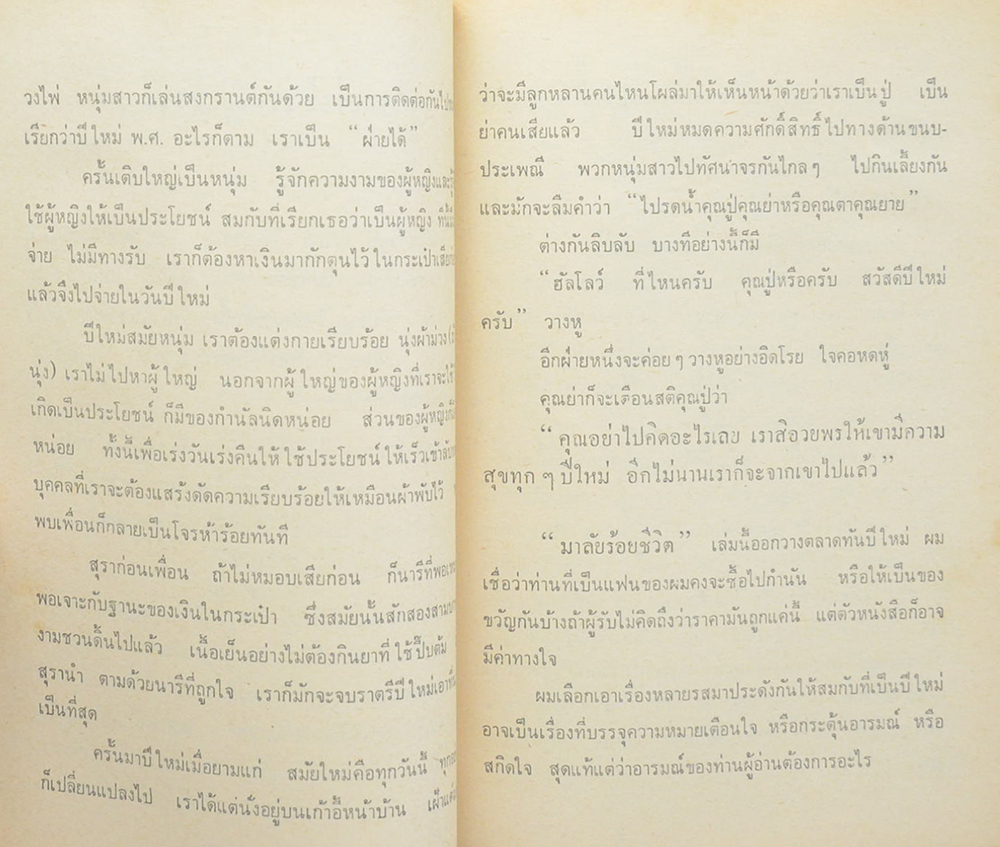 วงไพ่ หนุ่มสาวก็เล่นสงกรานต์กันด้วย เป็นการติดต่อกันไป
เรียกว่าปีใหม่ พ.ศ. อะไรก็ตาม เราเป็น “ฝ่ายได้”
ครั้นเติบใหญ่เป็นหนุ่ม รู้จักความงามของผู้หญิงและ
ใช้ผู้หญิงให้เป็นประโยชน์ สมกับที่เรียกเธอว่าเป็นผู้หญิง
จ่าย ไม่มีทางรับ เราก็ต้องหาเงินมากักตุนไว้ในกระเป๋าเสีย
แล้วจึงไปจ่ายในวันปีใหม่
ปีใหม่สมัยหนุ่ม เราต้องแต่งกายเรียบร้อย นุ่งผ้าม่วง
นุ่ง) เราไม่ไปหาผู้ใหญ่ นอกจากผู้ใหญ่ของผู้หญิงที่เราจะ
เกิดเป็นประโยชน์ ก็มีของกำนัลนิดหน่อย ส่วนของผู้หญิง
หน่อย ทั้งนี้เพื่อเร่งวันเร่งคืนให้ใช้ประโยชน์ให้เร็วเข้า
บุคคลที่เราจะต้องแสร้งดัดความเรียบร้อยให้เหมือนผ้าพับไว้
พบเพื่อนก็กลายเป็นโจรห้าร้อยทันที
สุราก่อนเพื่อน ถ้าไม่หมอบเสียก่อน ก็นารีที่พอ
พอเจาะกับฐานะของเงินในกระเป๋า ซึ่งสมัยนั้นสักสองสาม
งามชวนดิ้นไปแล้ว เนื้อเย็นอย่างไม่ต้องกินยาที่ใช้ปี๊บต้ม
สุรานำ ตามด้วยนารีที่ถูกใจ เราก็มักจะจบราตรีปีใหม่เอา
เป็นที่สุด
ครั้นมาปีใหม่เมื่อยามแก่ สมัยใหม่คือทุกวันนี้
ก็เปลี่ยนแปลงไป เราได้แต่นั่งอยู่บนเก้าอี้หน้าบ้าน
ว่าจะมีลูกหลานคนไหนโผล่มาให้เห็นหน้าด้วยว่าเราเป็นปู่ เป็น
ย่าคนเสียแล้ว ปีใหม่หมดความศักดิ์สิทธิ์ไปทางด้านขนบ-
ประเพณี พวกหนุ่มสาวไปทัศนาจรกันไกลๆ ไปกินเลี้ยงกัน
และมักจะลืมคำว่า “ไปรดน้ำคุณปู่คุณย่าหรือคุณตาคุณยาย”
ต่างกันลิบลับ บางทีอย่างนี้ก็มี
“ฮัลโลว์ ที่ไหนครับ คุณปู่หรือครับ สวัสดีปีใหม่
ครับ” วางหู
อีกฝ่ายหนึ่งจะค่อยๆ วางหูอย่างอิดโรย ใจคอหดหู่
คุณย่าก็จะเตือนสติคุณปู่ว่า
“คุณอย่าไปคิดอะไรเลย เราสิอวยพรให้เขามีความ
สุขทุกๆ ปีใหม่ อีกไม่นานเราก็จะจากเขาไปแล้ว”
“มาลัยร้อยชีวิต” เล่มนี้ออกวางตลาดทันปีใหม่ ผม
เชื่อว่าท่านที่เป็นแฟนของผมคงจะซื้อไปกำนัน หรือให้เป็นของ
ขวัญกันบ้างถ้าผู้รับไม่คิดถึงว่าราคามันถูกแค่นี้ แต่ตัวหนังสือก็อาจ
มีค่าทางใจ
ผมเลือกเอาเรื่องหลายรสมาประดังกันให้สมกับที่เป็นปีใหม่
อาจเป็นเรื่องที่บรรจุความหมายเตือนใจ หรือกระตุ้นอารมณ์ หรือ
สกิดใจ สุดแท้แต่ว่าอารมณ์ของท่านผู้อ่านต้องการอะไร